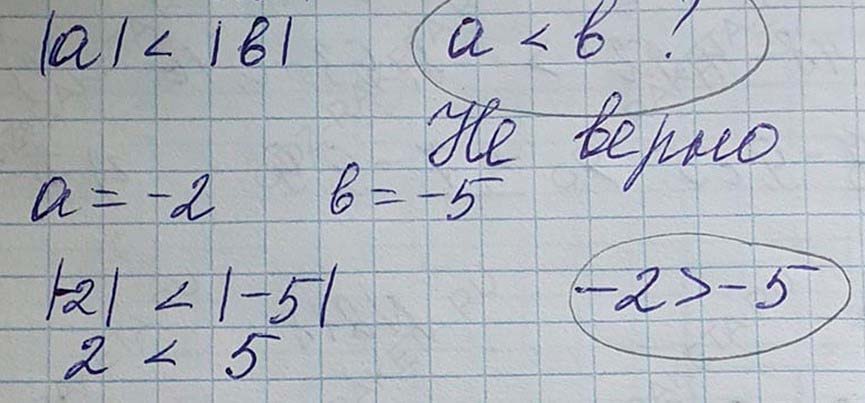 |a| < |в| a < в !
Не верно
a = -2 в = -5
|-2| < |-5| -2 > -5
2 < 5